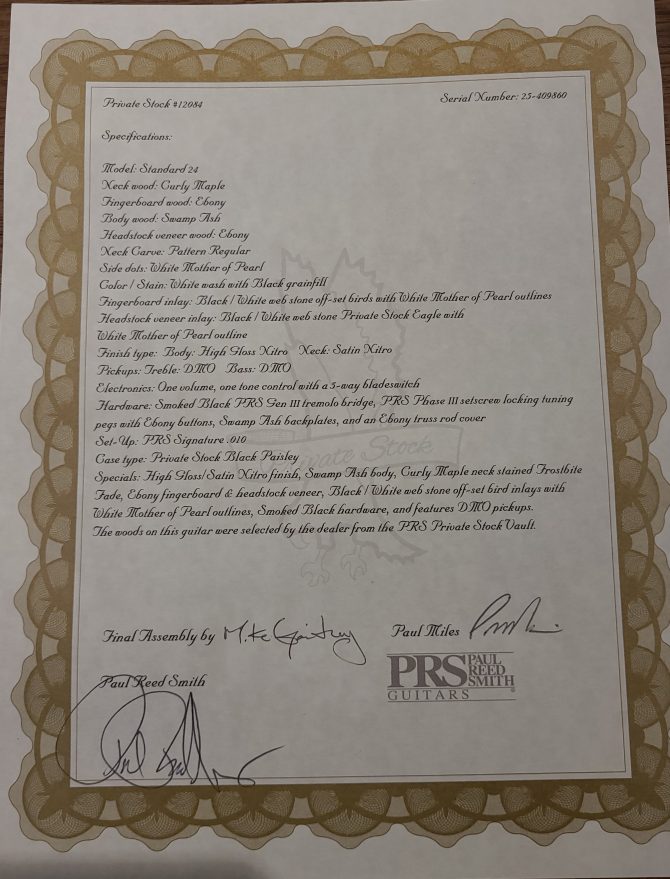 Private Stock #12084
Serial Number: 25-409860
Specifications:
Model: Standard 24
Neck wood: Curly Maple
Fingerboard wood: Ebony
Body wood: Swamp Ash
Headstock veneer wood: Ebony
Neck Carve: Pattern Regular
Side dots: White Mother of Pearl
Color / Stain: White wash with Black grainfill
Fingerboard inlay: Black / White web stone off-set birds with White Mother of Pearl outlines
Headstock veneer inlay: Black / White web stone Private Stock Eagle with
White Mother of Pearl outline
Finish type: Body: High Gloss Nitro Neck: Satin Nitro
Pickups: Treble: DMO Bass: DMO
Electronics: One volume, one tone control with a 5-way bladeswitch
Hardware: Smoked Black PRS Gen III tremolo bridge, PRS Phase III setscrew locking tuning
pegs with Ebony buttons, Swamp Ash backplates, and an Ebony truss rod cover
Set-Up: PRS Signature .010
Private Stock
Case type: Private Stock Black Paisley
Specials: High Gloss/Satin Nitro finish, Swamp Ash body, Curly Maple neck stained Frostbite
Fade, Ebony fingerboard & headstock veneer, Black / White web stone off-set bird inlays with
White Mother of Pearl outlines, Smoked Black hardware, and features DMO pickups.
The woods on this guitar were selected by the dealer from the PRS Private Stock Vault.
Final Assembly by
Paul Miles
Paul Reed Smith
PRS PAUL REED SMITH
GUITARS